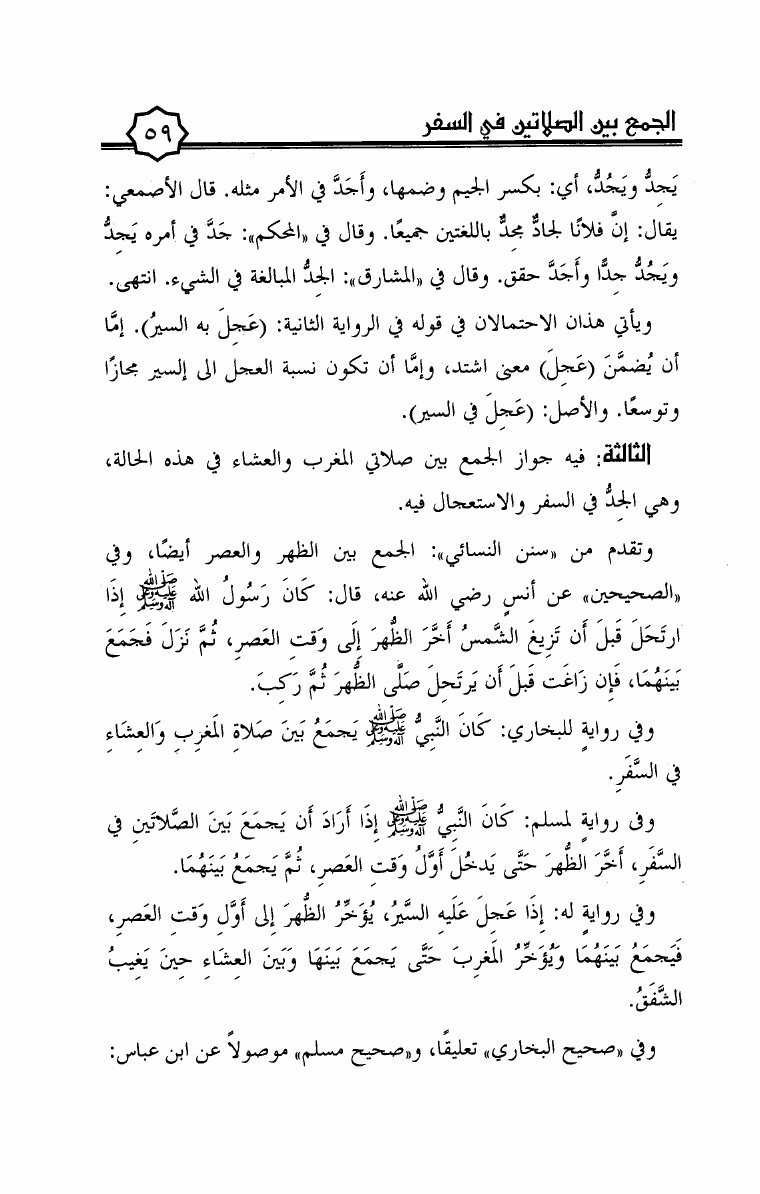 الجمع بين الصلاتين في السفر
٥٩
يَجِدُّ ويَجُدُّ، أي: بكسر الجيم وضمها، وأَجَدَّ في الأمر مثله. قال الأصمعي:
يقال: إنَّ فلانًا لجادٌّ مجدٌّ باللغتين جميعًا. وقال في «المحكم»: جَدَّ في أمره يَجِدُّ
ويَجُدُّ جدًّا وأَجَدَّ حقق. وقال في «المشارق»: الجدُّ المبالغة في الشيء. انتهى.
ويأتي هذان الاحتمالان في قوله في الرواية الثانية: (عَجِلَ به السيرُ). إمَّا
أن يُضمَّنَ (عَجِلَ) معنى اشتد، وإمَّا أن تكون نسبة العجل الى إلسير مجازًا
وتوسعًا. والأصل: (عَجِلَ في السير).
الثالثة: فيه جواز الجمع بين صلاتي المغرب والعشاء في هذه الحالة،
وهي الجِدُّ في السفر والاستعجال فيه.
وتقدم من «سنن النسائي»: الجمع بين الظهر والعصر أيضًا، وفي
«الصحيحين» عن أنسٍ رضي الله عنه، قال: كَانَ رَسُولُ الله ﷺ إِذَا
ارتَحَلَ قَبلَ أَن تَزِيغَ الشَّمسُ أَخَّرَ الظُّهرَ إِلَى وَقتِ العَصرِ، ثُمَّ نَزَلَ فَجَمَعَ
بَينَهُمَا، فَإِن زَاغَت قَبلَ أَن يَرتَحِلَ صَلَّى الظُّهرَ ثُمَّ رَكِبَ.
وفي روايةٍ للبخاري: كَانَ النَّبِيُّ ﷺ يَجمَعُ بَينَ صَلاةِ المَغرِبِ وَالعِشَاءِ
في السَّفَرِ.
وفى روايةٍ لمسلم: كَانَ النَّبِيُّ ﷺ إِذَا أَرَادَ أَن يَجمَعَ بَينَ الصَّلاتَينِ في
السَّفَرِ، أَخَّرَ الظُّهرَ حَتَّى يَدخُلَ أَوَّلُ وَقتِ العَصرِ، ثُمَّ يَجمَعُ بَينَهُمَا.
وفي روايةٍ له: إِذَا عَجِلَ عَلَيهِ السَّيرُ، يُؤَخِّرُ الظُّهرَ إِلى أَوَّلِ وَقتِ العَصرِ،
فَيَجمَعُ بَينَهُمَا وَيُؤَخِّرُ المَغرِبَ حَتَّى يَجمَعَ بَينَهَا وَبَينَ العِشَاءِ حِينَ يَغِيبُ
الشَّفَقُ.
وفي «صحيح البخاري» تعليقًا، و«صحيح مسلم» موصولاً عن ابن عباس: